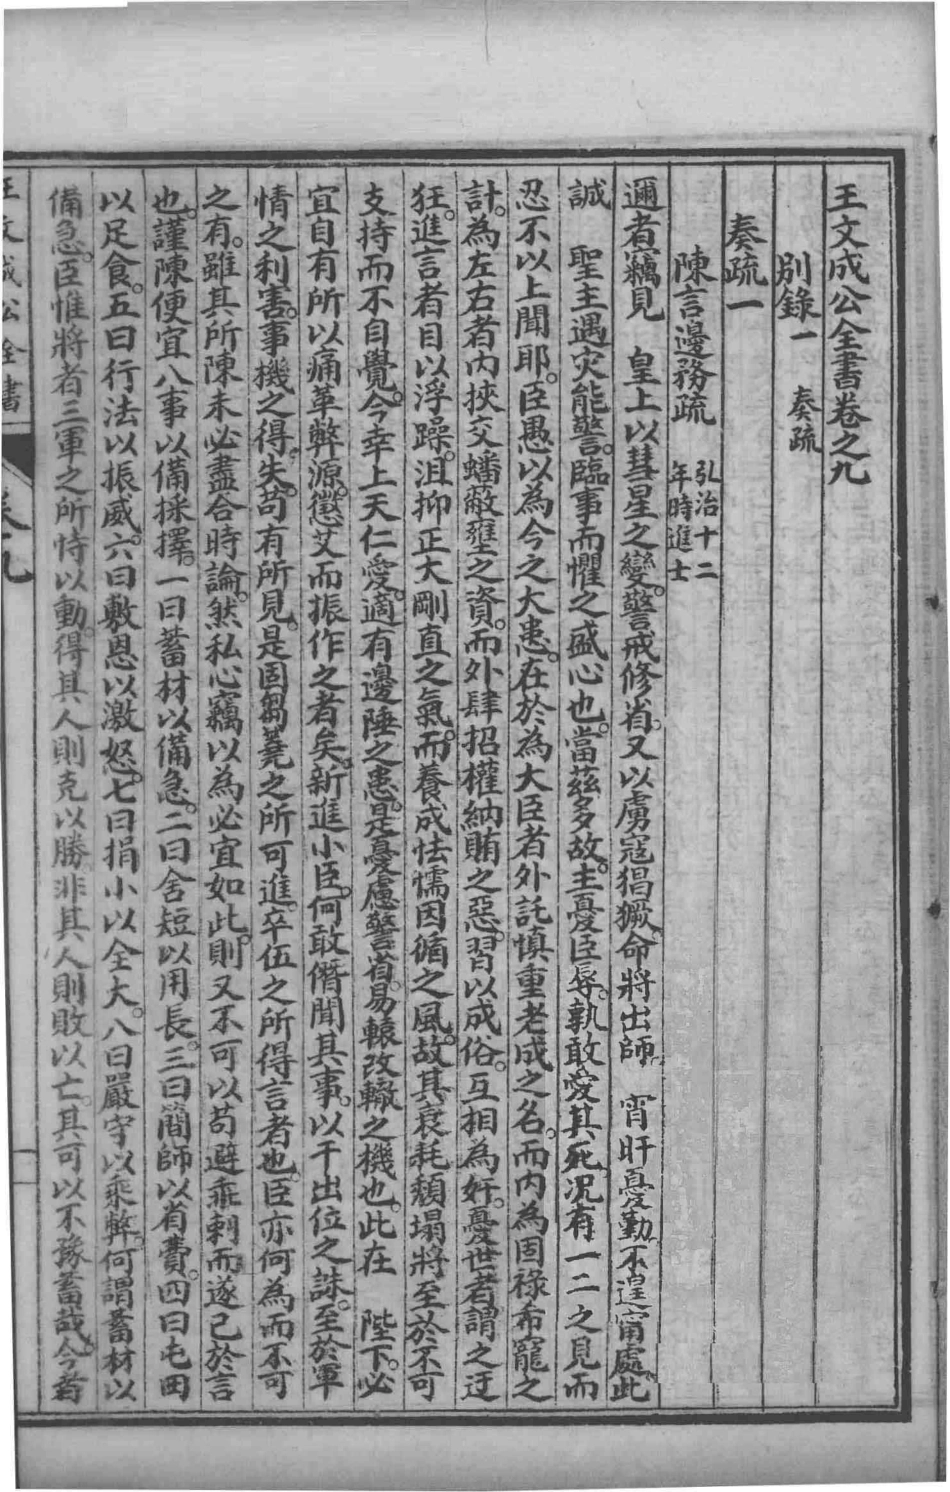 王文成公全書卷之九
別錄一　奏疏
奏疏一
陳言邊務疏　弘治十二年時進士
邇者竊見　皇上以彗星之變。警戒修省。又以虜寇猖獗。命將出師。　宵旰憂勤。不遑甯處。此
誠　聖主遇灾能警。臨事而懼之盛心也。當茲多故。主憂臣辱。孰敢愛其死。况有一二之見而
忍不以上聞耶。臣愚以為今之大患。在於為大臣者外託慎重老成之名。而內為固祿希寵之
計。為左右者內挾交蟠蔽壅之資。而外肆招權納賄之惡。習以成俗。互相為奸。憂世者謂之迂
狂。進言者目以浮躁。沮抑正大剛直之氣。而養成怯懦因循之風。故其衰耗頹塌將至於不可
支持而不自覺。今幸上天仁愛。適有邊陲之患。是憂慮警省。易轅改轍之機也。此在　陛下。必
宜自有所以痛革弊源。懲艾而振作之者矣。新進小臣。何敢僭聞其事。以干出位之誅。至於軍
情之利害。事機之得失。苟有所見。是固芻蕘之所可進。卒伍之所得言者也。臣亦何為而不可
之有。雖其所陳未必盡合時論。然私心竊以為必宜如此。則又不可以苟避乖剌而遂已於言
也。謹陳便宜八事以備採擇。一曰蓄材以備急。二曰舍短以用長。三曰簡師以省費。四曰屯田
以足食。五曰行法以振威。六曰敷恩以激怒。七曰捐小以全大。八曰嚴守以乘弊。何謂蓄材以
備急。臣惟將者三軍之所恃以動。得其人則克以勝。非其人則敗以亡。其可以不豫蓄哉。今者
王文成公全書
卷九
一